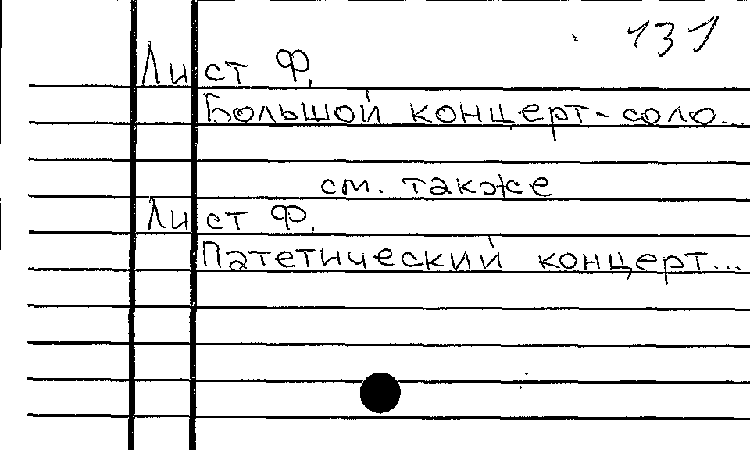 131
Лист Ф.
Большой концерт-соло...
см. также
Лист Ф.
Патетический концерт...